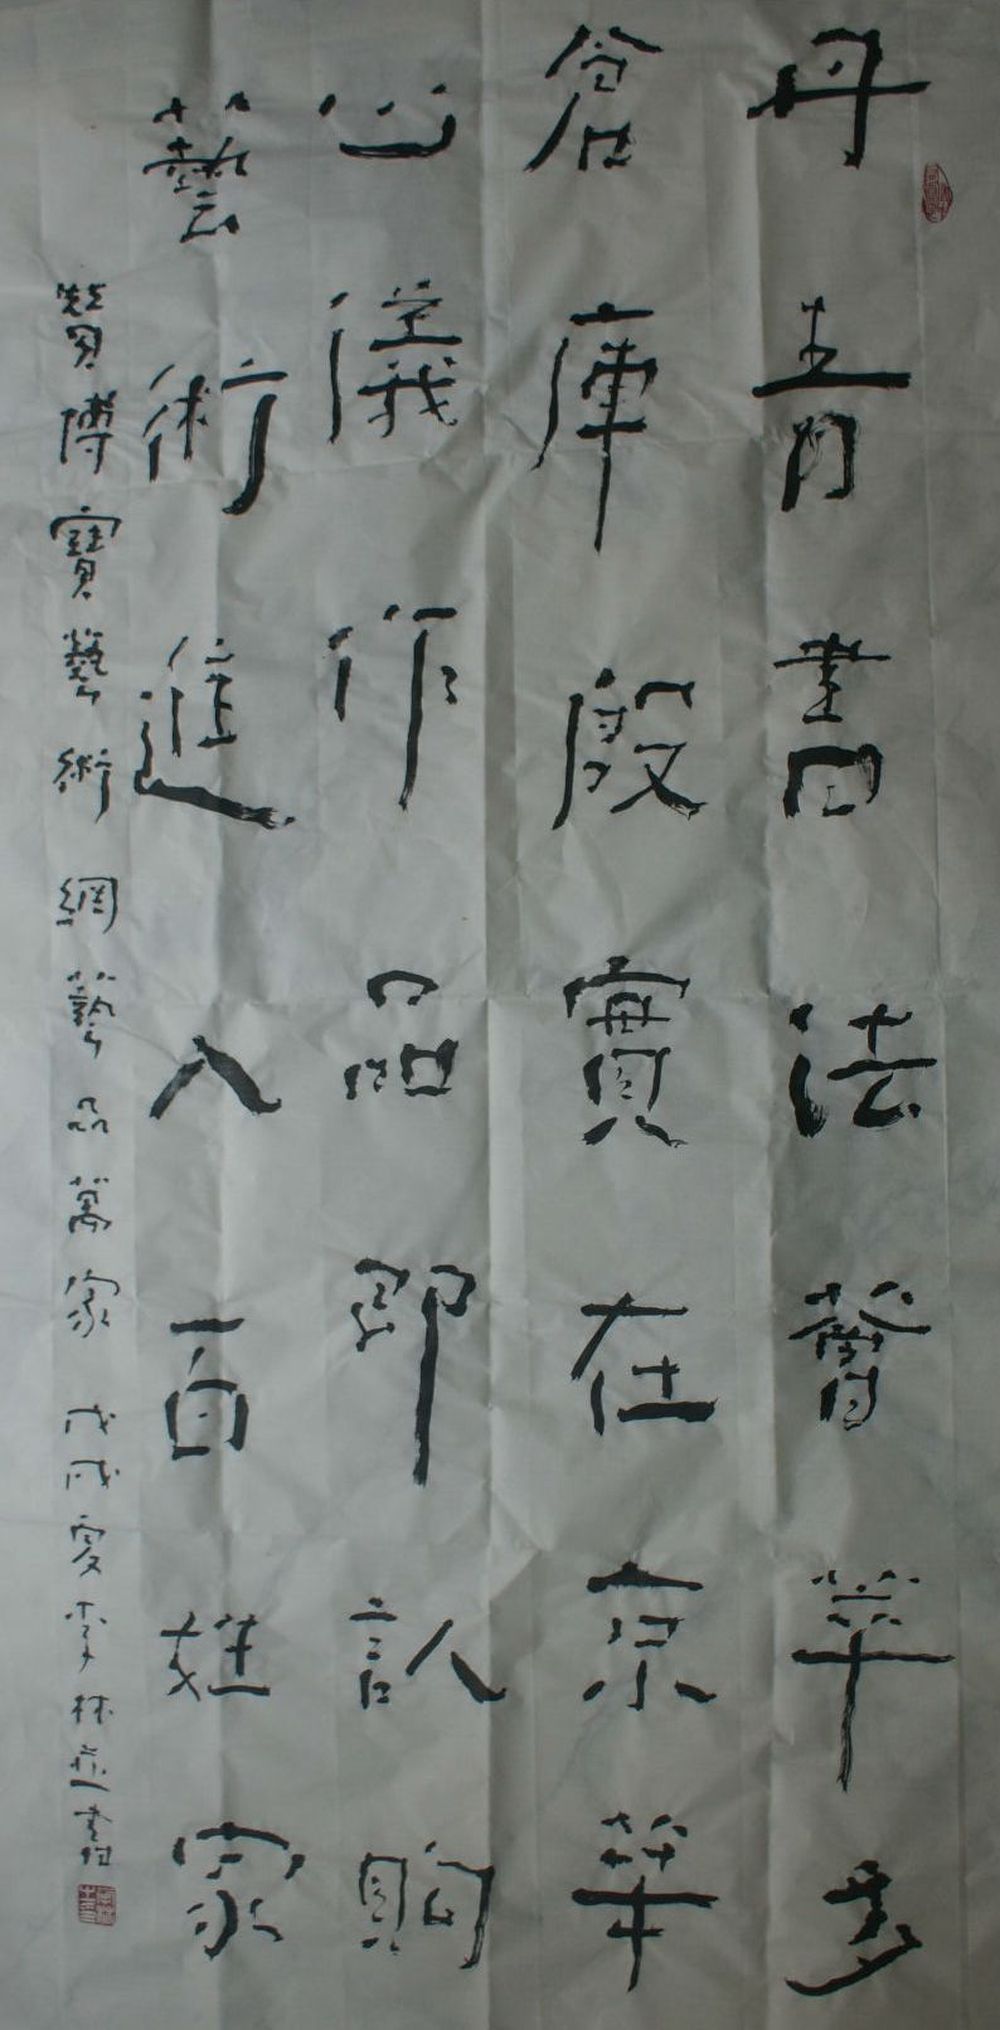 丹青書法薈萃多
倉庫殷實在京華
心儀作品即認購
藝術進入百姓家
贊博寶藝術網藝品萬家 戊戌夏李林並書